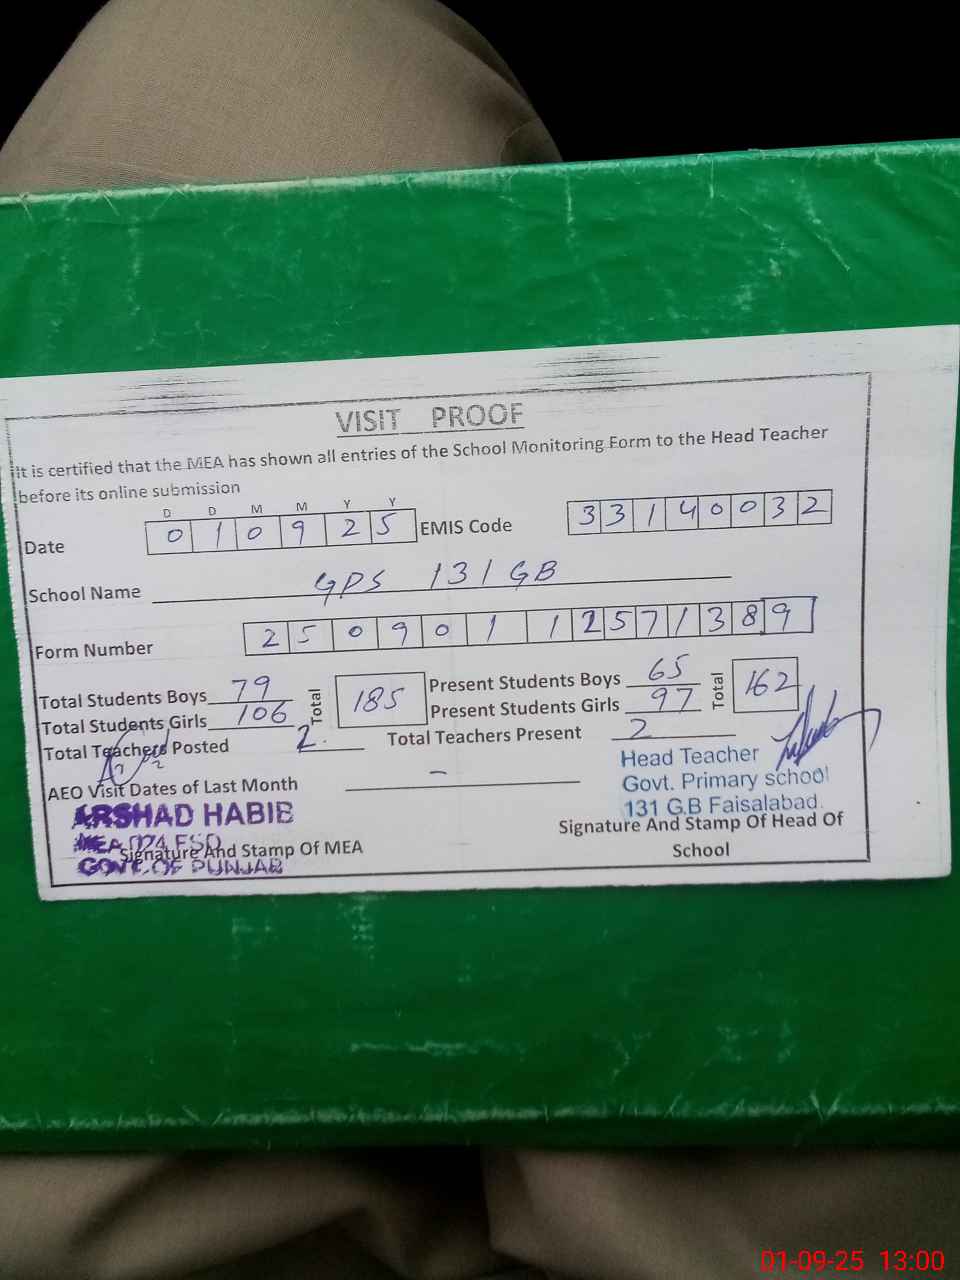 VISIT PROOF
It is certified that the MEA has shown all entries of the School Monitoring Form to the Head Teacher
before its online submission
D D M M Y Y
Date 0 1 0 9 2 5 EMIS Code 3 3 1 4 0 0 3 2
School Name GPS 131 GB
Form Number 2 5 0 9 0 1 1 2 5 7 1 3 8 9
Total Students Boys 79 Total 185 Present Students Boys 65 Total 162
Total Students Girls 106 Present Students Girls 97
Total Teachers Posted 2. Total Teachers Present 2
AEO Visit Dates of Last Month –
Head Teacher
Govt. Primary school
131 G.B Faisalabad.
ARSHAD HABIB
MEA 074 FSD
GOVT. OF PUNJAB
Signature And Stamp Of MEA
Signature And Stamp Of Head Of
School
01-09-25 13:00